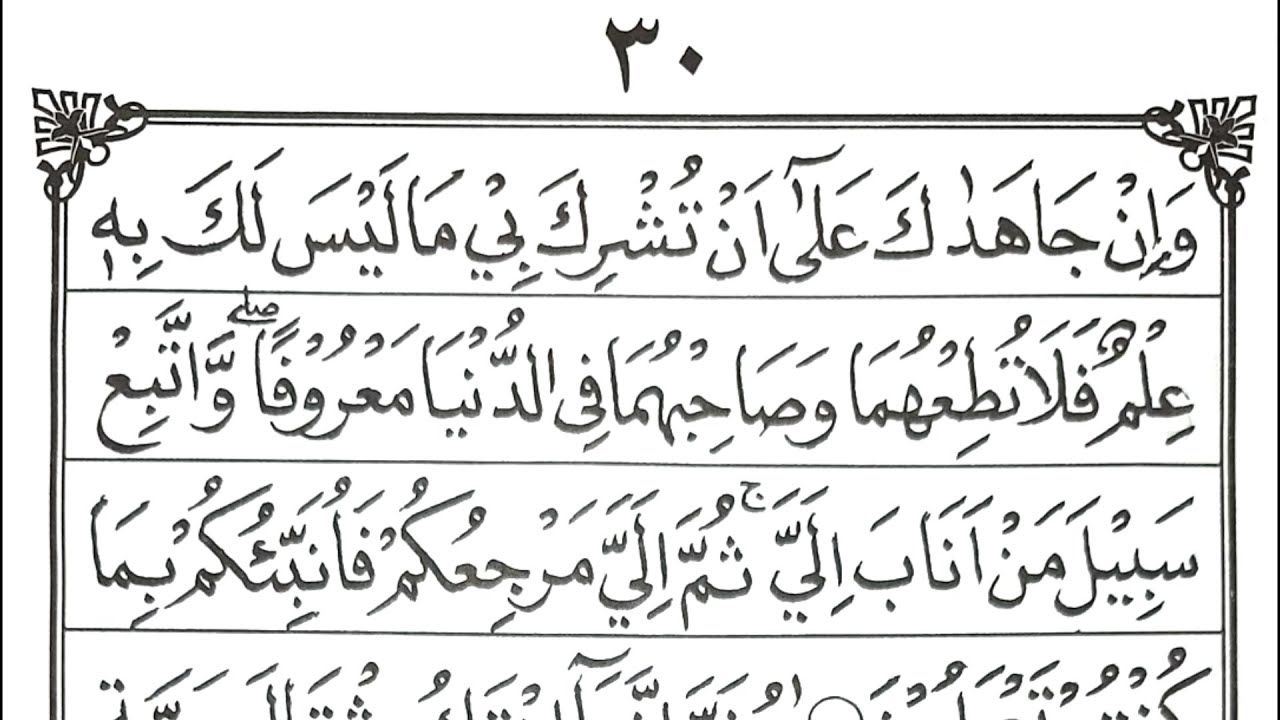 ٣٠
وَاِنْ جَاهَدٰكَ عَلٰٓى اَنْ تُشْرِكَ بِيْ مَا لَيْسَ لَكَ بِهٖ
عِلْمٌ فَلَا تُطِعْهُمَا وَصَاحِبْهُمَا فِى الدُّنْيَا مَعْرُوْفًا ۖ وَّاتَّبِعْ
سَبِيْلَ مَنْ اَنَابَ اِلَيَّ ۚ ثُمَّ اِلَيَّ مَرْجِعُكُمْ فَاُنَبِّئُكُمْ بِمَا